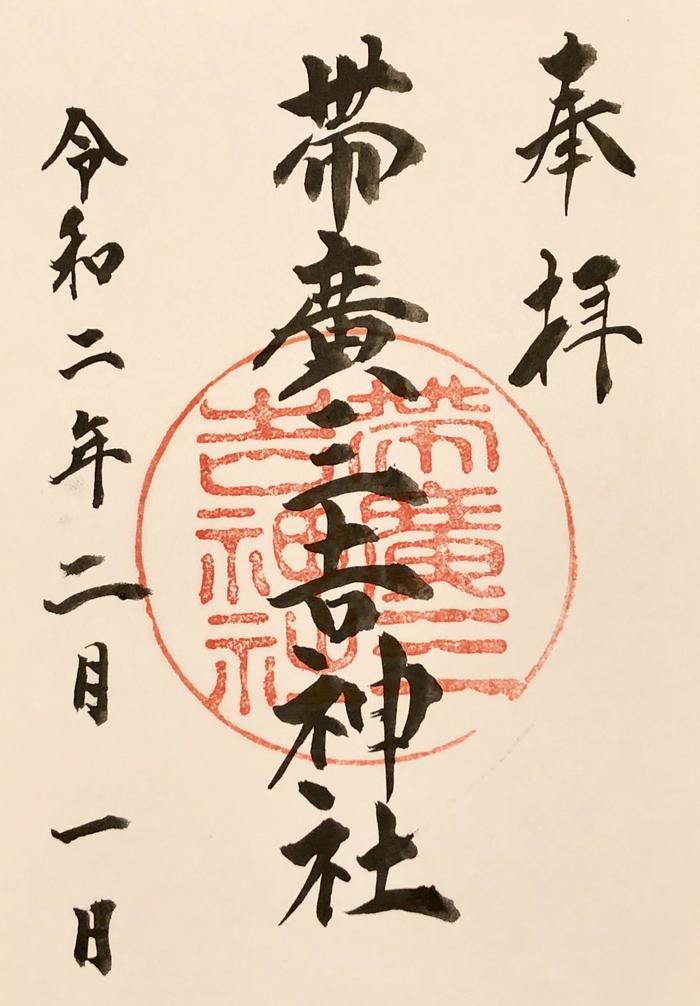 奉拝
帯廣三吉神社
令和二年二月一日
帯廣三
吉神社